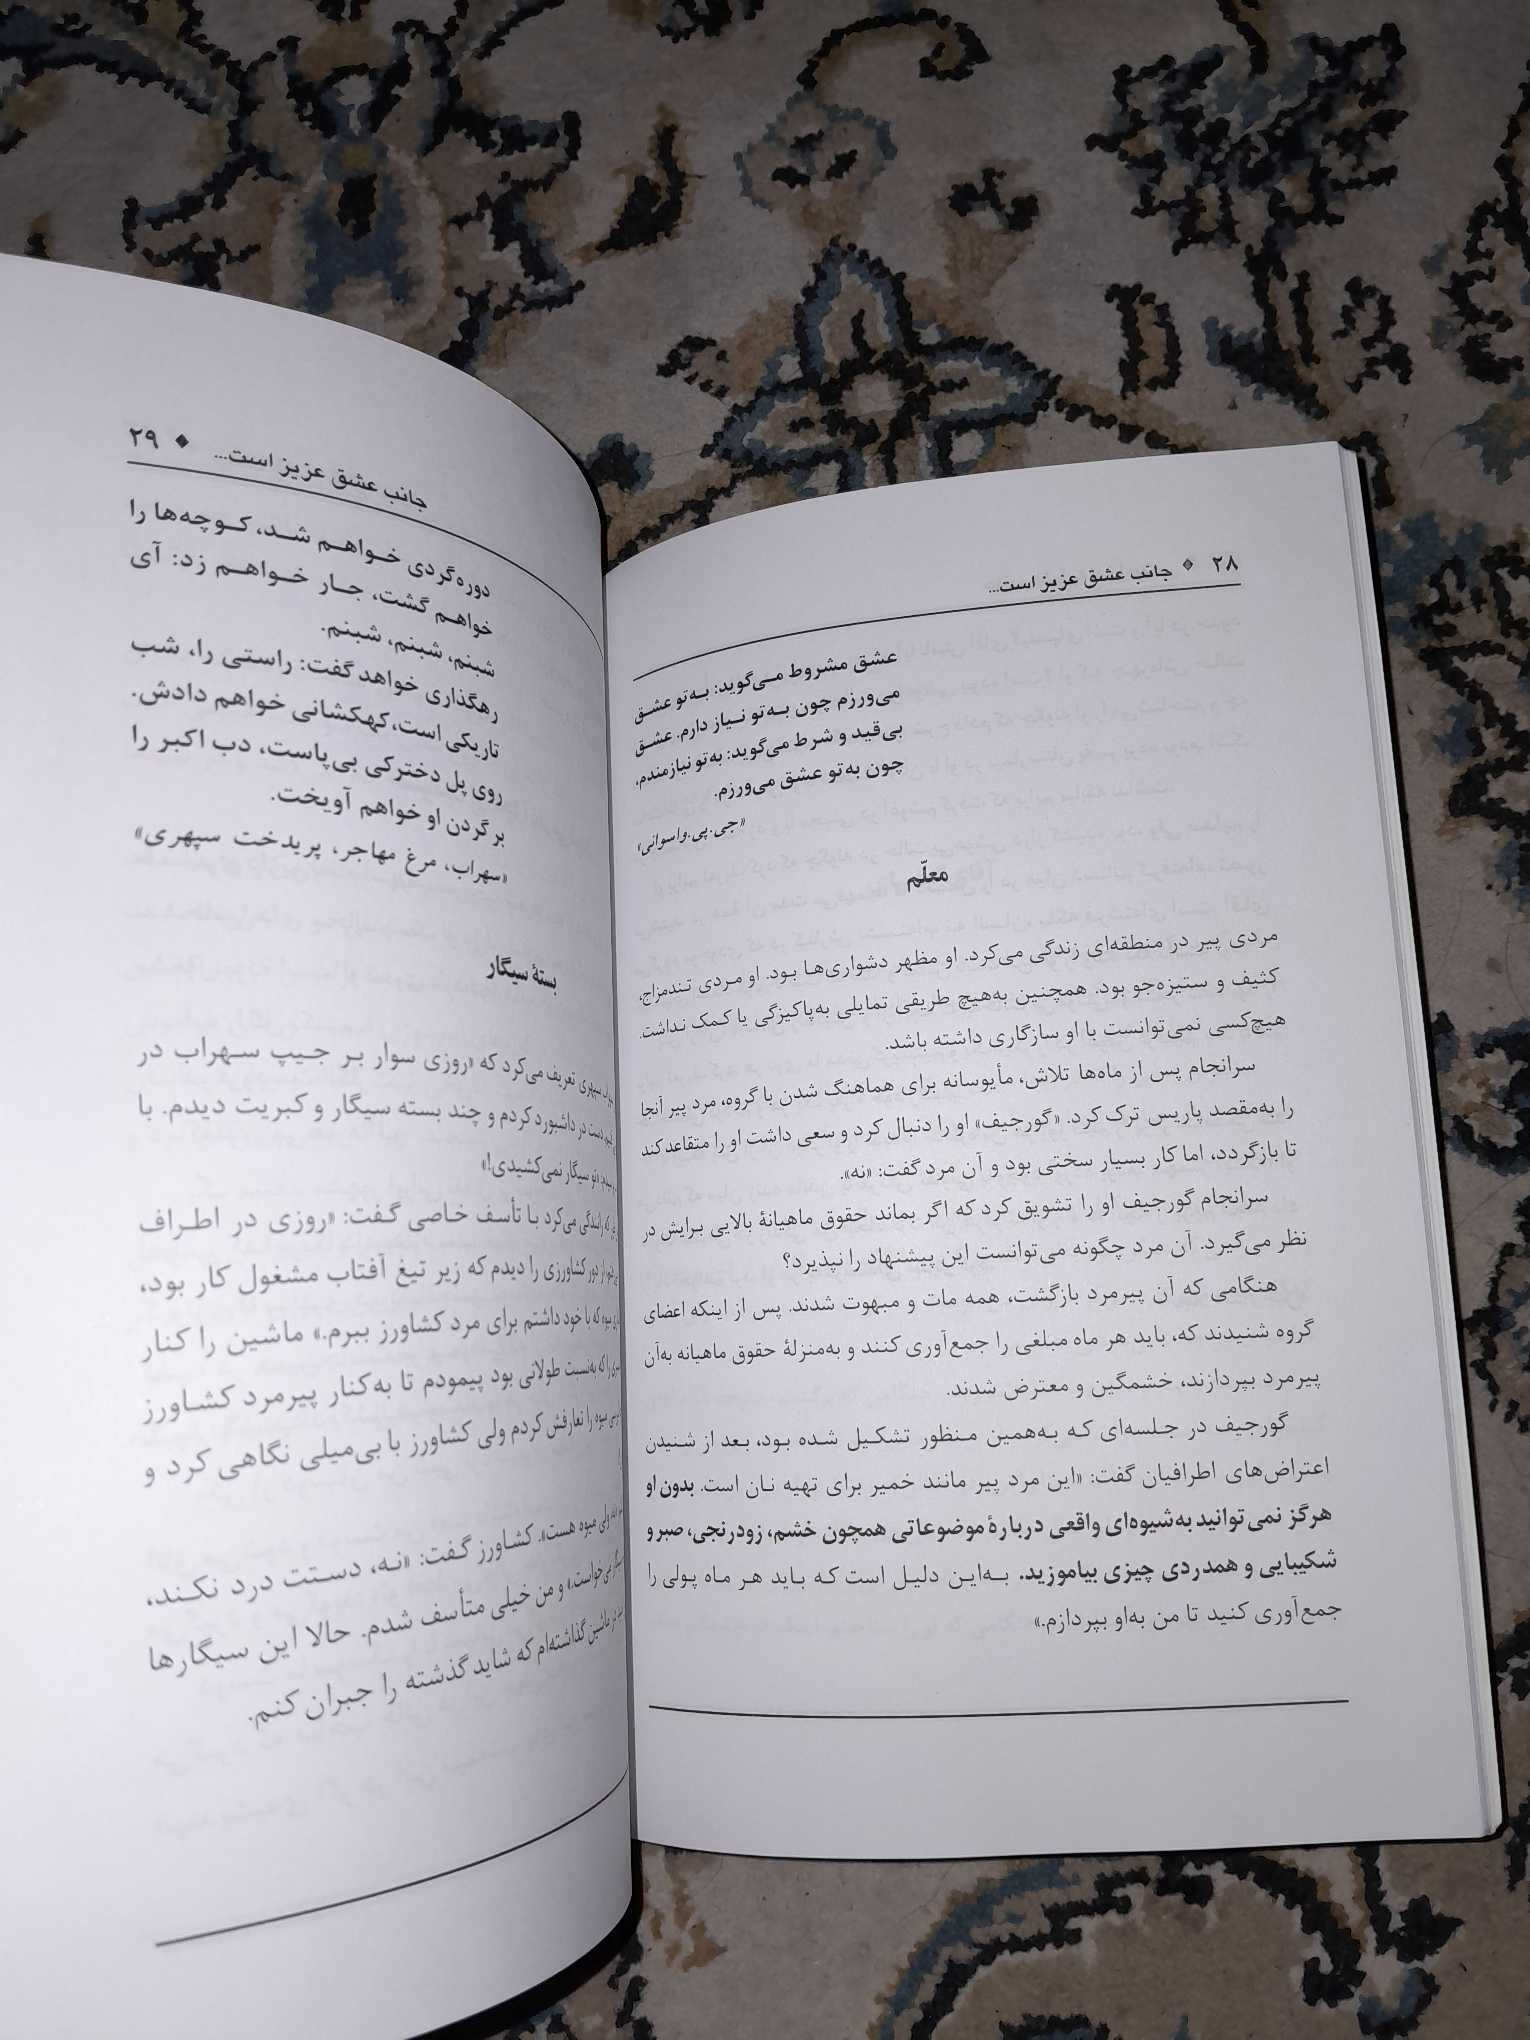 ۲۸ ◆ جانب عشق عزیز است...
عشق مشروط مـی‌گوید: بـه‌تو عشـق
می‌ورزم چون بـه‌تو نـیاز دارم. عشـق
بی‌قید و شرط می‌گوید: به‌تو نیازمندم،
چون به‌تو عشق می‌ورزم.
«جی.پی.واسوانی»
معلّم
مردی پیر در منطقه‌ای زندگی می‌کرد. او مظهر دشواری‌هـا بـود. او مـردی تـندمزاج،
کثیف و ستیزه‌جو بود. همچنین به‌هیچ طریقی تمایلی به‌پاکیزگی یا کـمک نـداشت.
هیچ‌کسی نمی‌توانست با او سازگاری داشته باشد.
سرانجام پس از ماه‌ها تلاش، مأیوسانه برای هماهنگ شدن با گروه، مرد پیر آنجا
را به‌مقصد پاریس ترک کرد. «گورجیف» او را دنبال کرد و سعی داشت او را متقاعد کند
تا بازگردد، اما کار بسیار سختی بود و آن مرد گفت: «نه».
سرانجام گورجیف او را تشویق کرد که اگر بماند حقوق ماهیانهٔ بالایی بـرایش در
نظر می‌گیرد. آن مرد چگونه می‌توانست این پیشنهاد را نپذیرد؟
هنگامی که آن پیرمرد بازگشت، همه مات و مبهوت شدند. پس از اینکه اعضای
گروه شنیدند که، باید هر ماه مبلغی را جمع‌آوری کنند و به‌منزلهٔ حقوق ماهیانه به‌آن
پیرمرد بپردازند، خشمگین و معترض شدند.
گورجیف در جلسه‌ای کـه بـه‌همین مـنظور تشکـیل شـده بـود، بـعد از شـنیدن
اعتراض‌های اطرافیان گفت: «این مرد پیر مانند خمیر برای تهیه نـان است. بدون او
هرگز نمی‌توانید به‌شیوه‌ای واقعی دربارهٔ موضوعاتی همچون خشم، زودرنجی، صبر و
شکیبایی و همدردی چیزی بیاموزید. بـه‌ایـن دلیـل است کـه بـاید هـر مـاه پـولی را
جمع‌آوری کنید تا من به‌او بپردازم.»
جانب عشق عزیز است... ◆ ۲۹
دوره‌گردی خـواهـم شـد، کـوچه‌ها را
خواهـم گشت، جـار خـواهـم زد: آی
شبنم، شبنم، شبنم.
رهگذاری خواهد گفت: راستی را، شب
تاریکی است، کهکشانی خواهم دادش.
روی پل دخترکی بی‌پاست، دب اکبر را
بر گردن او خواهم آویخت.
«سهراب، مرغ مهاجر، پریدخت سپهری»
بستهٔ سیگار
سپهری تعریف می‌کرد که «روزی سوار بـر جـیپ سـهراب در
دست در داشبورد کردم و چند بسته سیگار و کبریت دیدم. با
«تو سیگار نمی‌کشیدی!»
که رانندگی می‌کرد بـا تأسف خـاصی گـفت: «روزی در اطـراف
دور کشاورزی را دیدم که زیر تیغ آفتاب مشغول کار بود،
میوه که با خود داشتم برای مرد کشاورز ببرم.» ماشین را کنار
را که به‌نسبت طولانی بود پیمودم تا به‌کنار پیرمرد کشـاورز
میوه را تعارفش کردم ولی کشاورز با بی‌میلی نگاهی کرد و
ولی میوه هست». کشاورز گفت: «نـه، دسـتت درد نکـند،
و من خیلی متأسف شدم. حالا این سیگارها
ماشین گذاشته‌ام که شاید گذشته را جبران کنم.